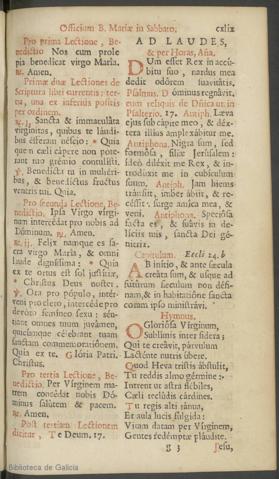 Officium B. Mariæ in Sabbato, cxlix
Pro prima Lectione, Be-
nedictio Nos cum prole
pia benedicat virgo Maria.
℞. Amen.
Primæ duæ Lectiones de
Scriptura libri currentis; ter-
tia, una ex inferiùs positis
per ordinem.
℞. j. Sancta & immaculàta
virginitas, quibus te láudi-
bus éfferam néscio: * Quia
quem cæli cápere non pote-
rant tuo grémio contulísti.
℣. Benedícta tu in muliéri-
bus, & benedíctus fructus
ventris tui. Quia,
Pro secunda Lectione, Be-
nedictio. Ipsa Virgo vírgi-
num intercédat pro nobis ad
Dóminum. ℞. Amen.
℞. ij. Felix namque es sa-
cra virgo María, & omni
laude digníssima: * Quia
ex te ortus est sol justítiæ,
* Christus Deus noster.
℣. Ora pro pópulo, intér-
veni pro clero, intercéde pro
devóto femíneo sexu: sén-
tiant omnes tuum juvámen,
quicúmque célebrant tuam
sanctam commemoratiónem.
Quia ex te. Glória Patri.
Christus.
Pro tertia Lectione, Be-
nedictio. Per Vírginem ma-
trem concédat nobis Dó-
minus salútem & pacem.
℞. Amen.
Post tertiam Lectionem
dicitur, Te Deum. 17.
AD LAUDES,
& per Horas, Aña.
Dum esset Rex in accú-
bitu suo, nardus mea
dedit odórem suavitátis.
Psalmus. Dóminus regnávit.
cum reliquis de Dñica ut in
Psalterio. 17. Antiph. Læva
ejus sub cápite meo, & déx-
tera illíus amplexábitur me.
Antiphona. Nigra sum, sed
formósa, fíliæ Jerúsalem:
ídeò diléxit me Rex, & in-
trodúxit me in cubículum
suum. Antiph. Jam hiems
tránsiit, imber ábiit, & re-
céssit: surge amíca mea, &
veni. Antiphona. Speciósa
facta es, & suávis in de-
líciis tuis, sancta Dei gé-
nitrix.
Capitulum. Eccli 24. b
AB inítio, & ante sæcula
creáta sum, & usque ad
futúrum sæculum non désí-
nam, & in habitatióne sancta
coram ipso ministrávi.
Hymnus.
O Gloriósa Vírginum,
Sublímis inter sídera;
Qui te creávit, párvulum
Lactente nutris úbere.
Quod Heva tristis ábstulit,
Tu reddis almo gérmine:
Intrent ut astra flébiles,
Cæli reclúdis cárdines.
Tu regis alti jánua,
Et aula lucis fúlgida:
Vitam datam per Vírginem,
Gentes redémptæ pláudite.
g 3 Jesu,
Biblioteca de Galicia